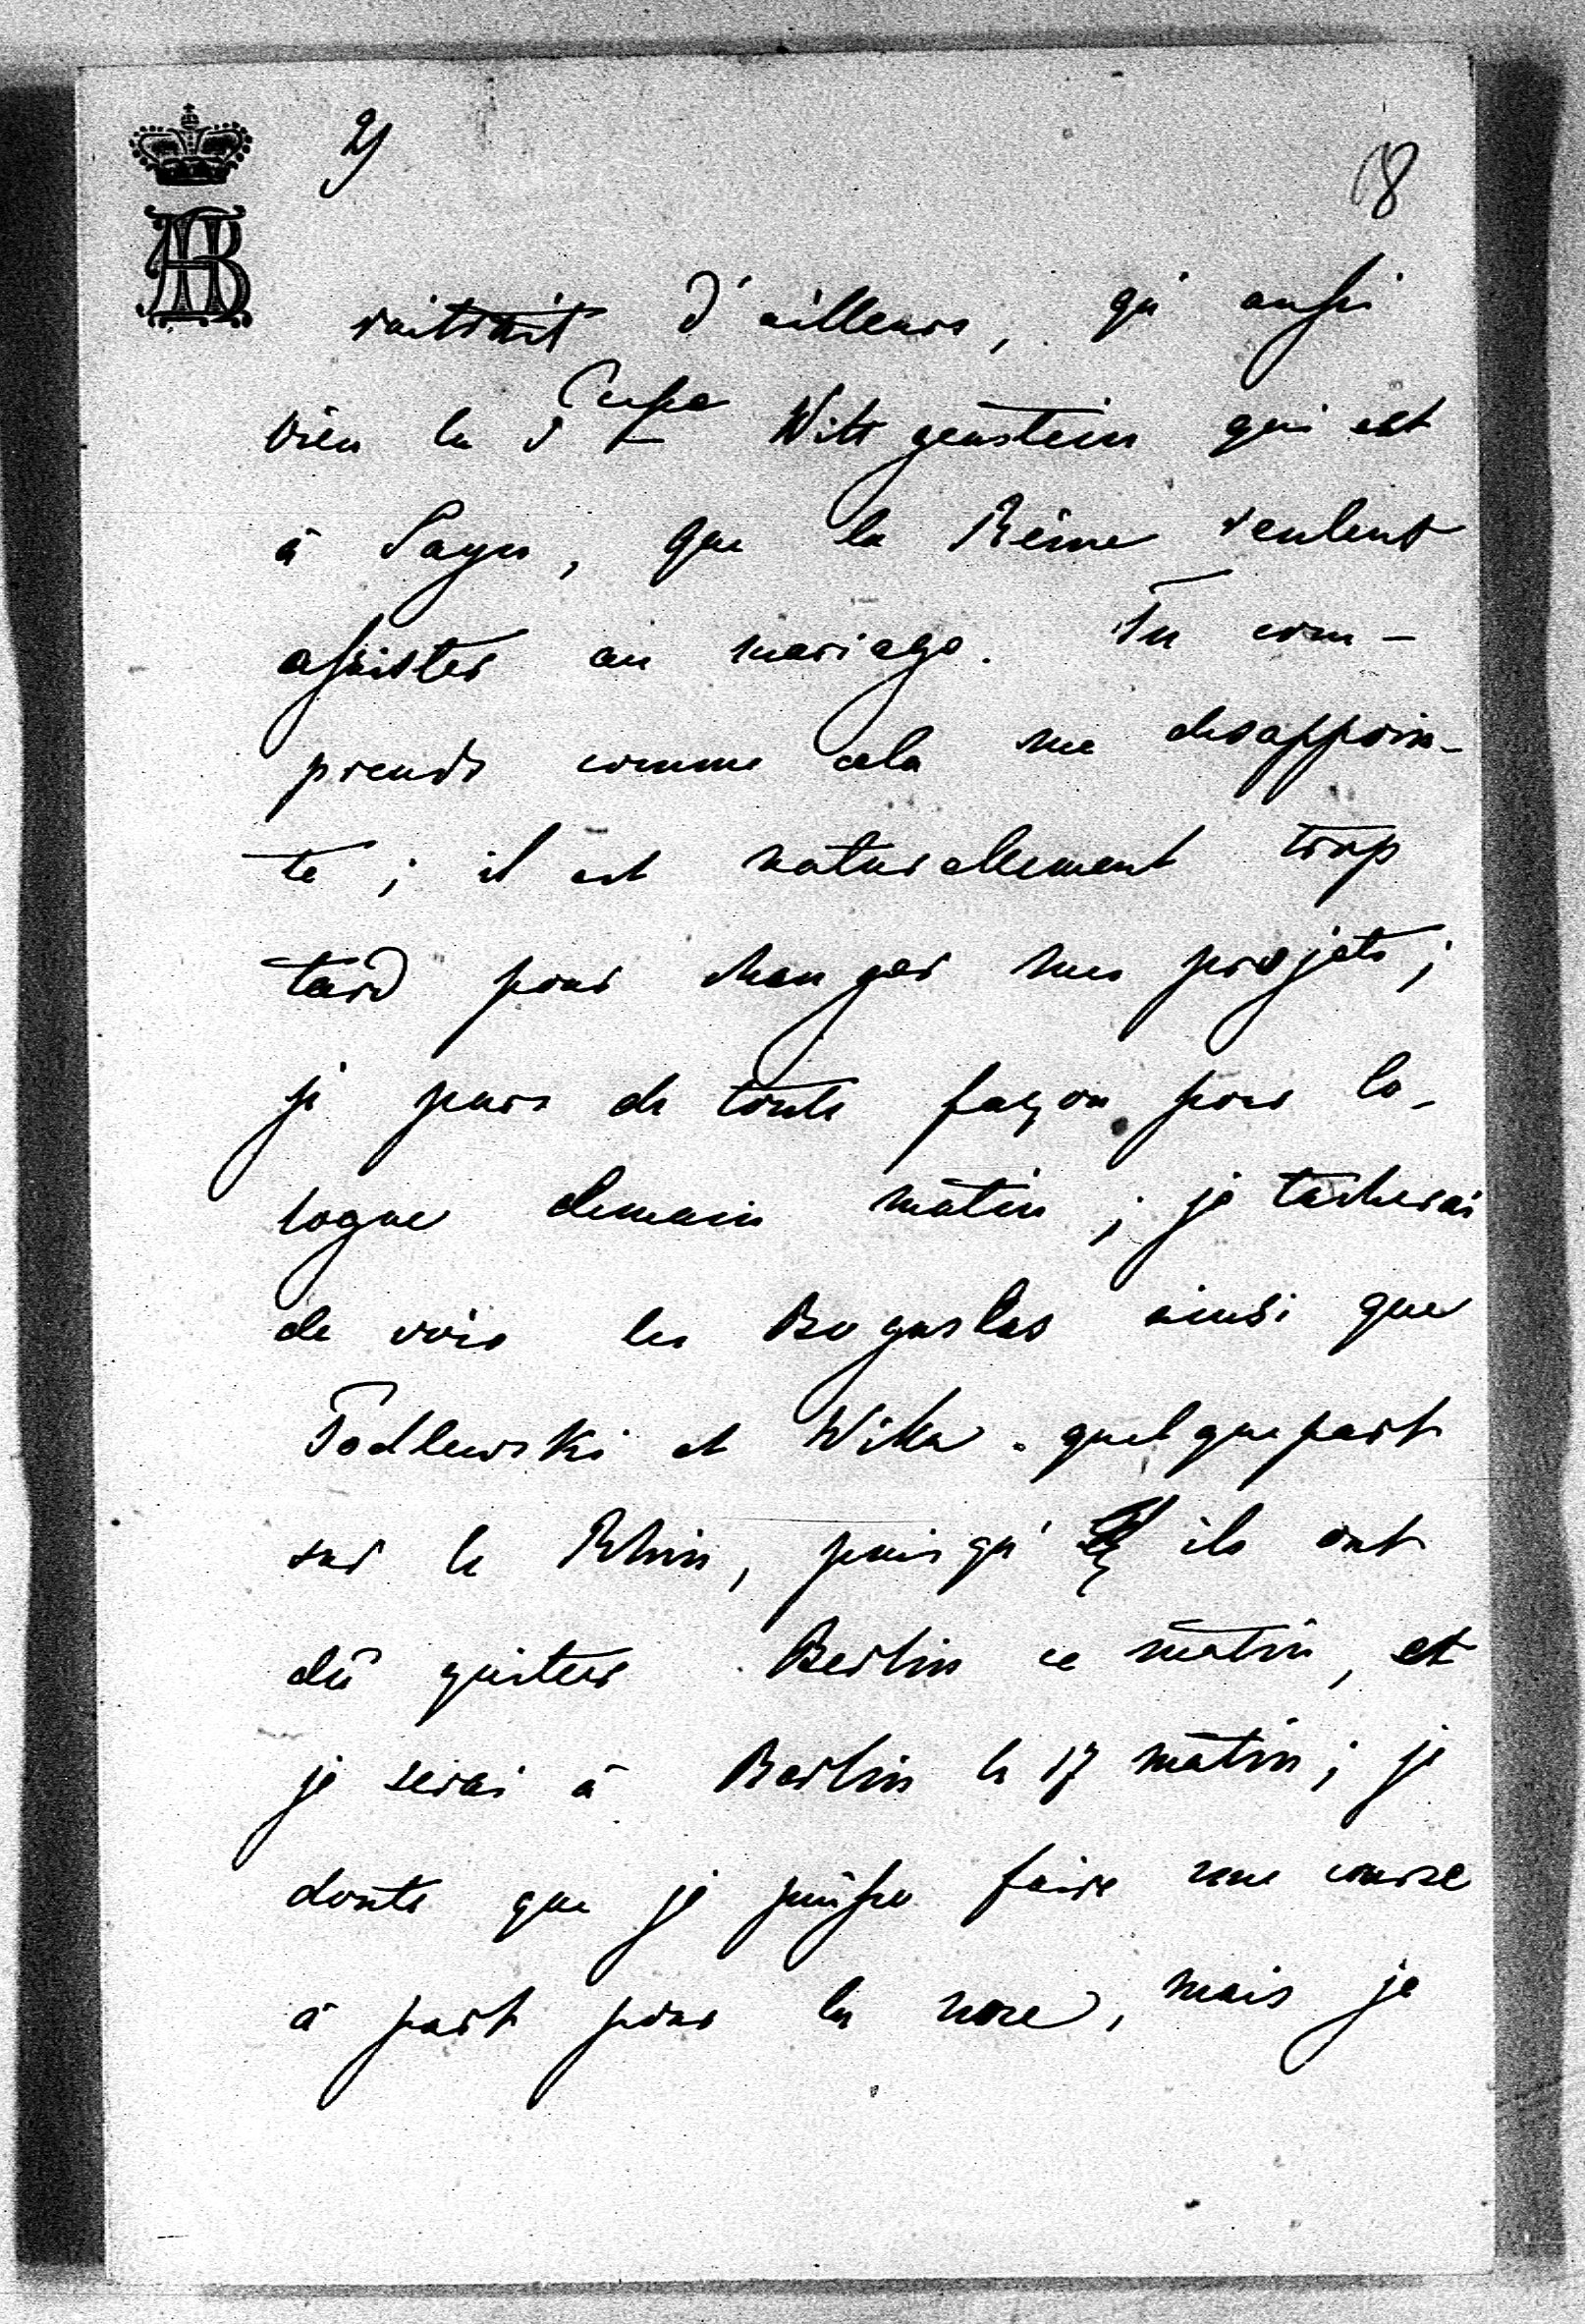 2)
18
AB
raitrait d'ailleurs, qu'aussi
bien la Pcesse Wittgenstein qui est
à Sayn, que la Reine veulent
assister au mariage. Tu com-
prends comme cela me desappoin-
te ; il est naturellement trop
tard pour changer mes projets ;
je pars de toute façon pour Co-
logne demain matin ; je tacherai
de voir les Boguslas ainsi que
Podlewski et Wika quelquepart
sur le Rhin, puisqu' ils ont
dû quitter Berlin ce matin, et
je serai à Berlin le 17 matin ; je
doute que je puisse faire une course
à part pour la noce, mais je